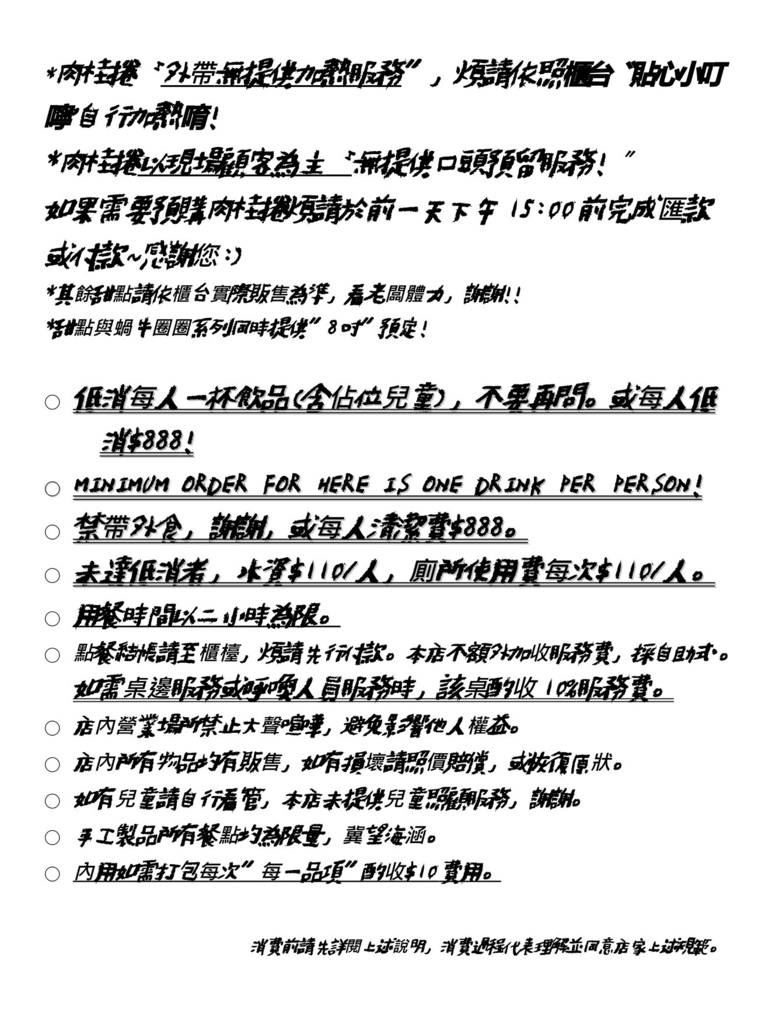 *肉桂捲“外帶無提供加熱服務”，煩請依照櫃台“貼心小叮
嚀”自行加熱唷!
*肉桂捲以現場顧客為主“無提供口頭預留服務!”
如果需要預購肉桂捲煩請於前一天下午 15:00 前完成匯款
或付款~感謝您:)
*其餘甜點請依櫃台實際販售為準，看老闆體力，謝謝!!
*甜點與蝸牛圈圈系列同時提供”8吋”預定!
○ 低消每人一杯飲品(含佔位兒童)，不要再問。或每人低
消$888!
○ MINIMUM ORDER FOR HERE IS ONE DRINK PER PERSON!
○ 禁帶外食，謝謝，或每人清潔費$888。
○ 未達低消者，水資$110/人，廁所使用費每次$110/人。
○ 用餐時間以二小時為限。
○ 點餐結帳請至櫃檯，煩請先行付款。本店不額外加收服務費，採自助式。
如需桌邊服務或呼喚人員服務時，該桌酌收 10%服務費。
○ 店內營業場所禁止大聲喧嘩，避免影響他人權益。
○ 店內所有物品均有販售，如有損壞請照價賠償，或恢復原狀。
○ 如有兒童請自行看管，本店未提供兒童照顧服務，謝謝。
○ 手工製品所有餐點均為限量，冀望海涵。
○ 內用如需打包每次”每一品項”酌收$10 費用。
消費前請先詳閱上述說明，消費過程代表理解並同意店家上述規範。